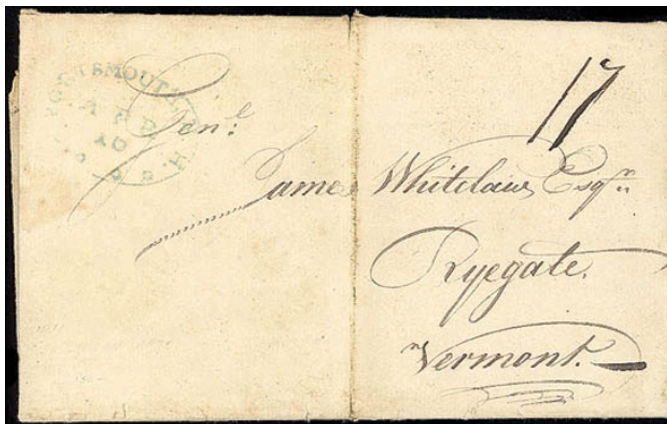 PORTSMOUTH N.H
APR
10
17
Gen.l
James Whitelaw Esqr.
Ryegate.
Vermont.